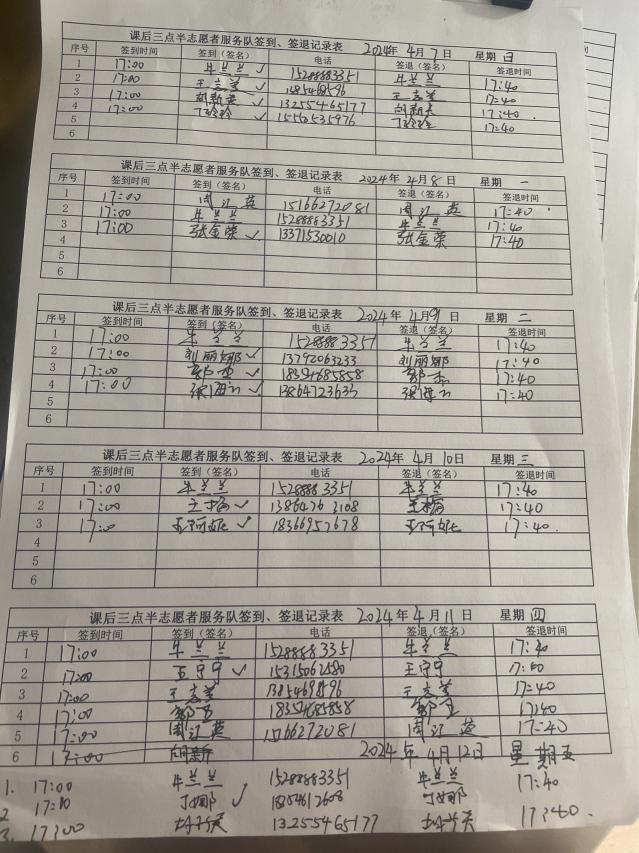 课后三点半志愿者服务队签到、签退记录表 2024年 4月 7日 星期 日
序号 签到时间 签到(签名) 电话 签退(签名) 签退时间
1 17:00 牛兰兰 ✓ 15288883351 牛兰兰 17:40
2 17:00 王志美 ✓ 王志美 17:40
3 17:00 胡新英 ✓ 13255465177 胡新英 17:40
4 17:00 丁玲玲 ✓ 15550535976 丁玲玲 17:40
5
6
课后三点半志愿者服务队签到、签退记录表 2024年 4月8日 星期 一
序号 签到时间 签到(签名) 电话 签退(签名) 签退时间
1 17:00 周江英 15166272081 周江英 17:40
2 17:00 牛兰兰 15288883351 牛兰兰 17:40
3 17:00 张金荣 ✓ 13371530010 张金荣 17:40
4
5
6
课后三点半志愿者服务队签到、签退记录表 2024年 4月9日 星期 二
序号 签到时间 签到(签名) 电话 签退(签名) 签退时间
1 17:00 牛兰兰 15288883351 牛兰兰 17:40
2 17:00 刘丽娜 ✓ 13792063233 刘丽娜 17:40
3 17:00 ✓ 18354685858 17:40
4 17:00 ✓ 13864723633 17:40
5
6
课后三点半志愿者服务队签到、签退记录表 2024年 4月10日 星期 三
序号 签到时间 签到(签名) 电话 签退(签名) 签退时间
1 17:00 牛兰兰 15288883351 牛兰兰 17:40
2 17:00 王梅 ✓ 13864763108 王梅 17:40
3 17:00 ✓ 18366957678 17:40
4
5
6
课后三点半志愿者服务队签到、签退记录表 2024年 4月11日 星期 四
序号 签到时间 签到(签名) 电话 签退(签名) 签退时间
1 17:00 牛兰兰 15288883351 牛兰兰 17:40
2 17:00 王宁宁 ✓ 15315062580 王宁宁
3 17:00 王志美 王志美 17:40
4 17:00 18354685858 17:40
5 17:00 周江英 周江英 17:40
6 17:00 胡新 2024年 4月12日 星期五
1. 17:00 牛兰兰 15288883351 牛兰兰 17:40
2 17:10 丁娜 ✓ 丁娜
3. 17:00 13255465177 17:40.